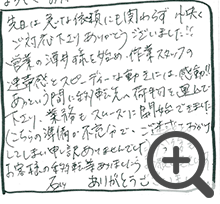 先日は急な依頼にも関わらず 心快く
ご対応下さり ありがとうございました!!
営業の澤井様を始め、作業スタッフの
連帯感とスピーディーな動きには、感動!!
あっという間に新転先へ荷物を運んで
下さり、業務もスムーズに開始できました。
こちらの準備が不充分で、ご迷惑をおかけ
してしまい申し訳ありませんでした
お客様の
ありがとうご